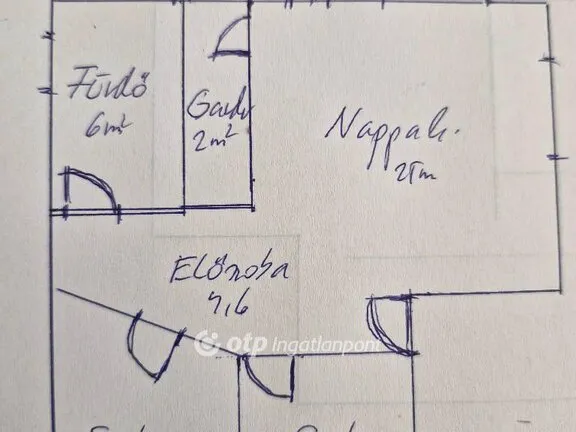 Fürdő
6m²
Gard
2m²
Nappali
25m
Előszoba
4,6
otp Ingatlanpont